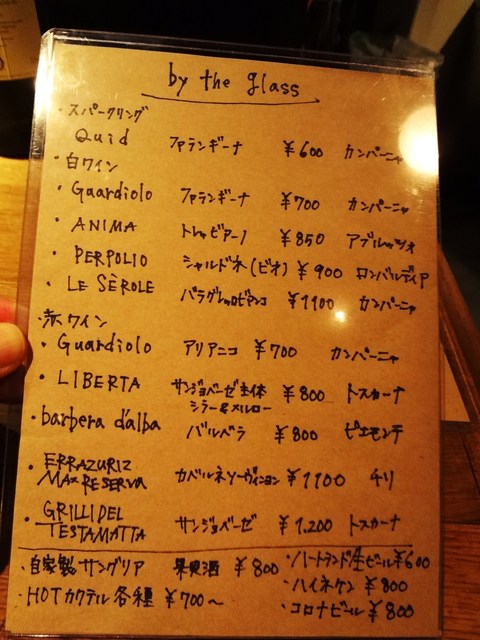 by the glass
・スパークリング
Quid ファランギーナ ¥600 カンパーニャ
・白ワイン
・Guardiolo ファランギーナ ¥700 カンパーニャ
・ANIMA トレッビアーノ ¥850 アブルッツォ
・PERPOLIO シャルドネ(ビオ) ¥900 ロンバルディア
・LE SÈROLE パラグレッロビアンコ ¥1100 カンパーニャ
・赤ワイン
・Guardiolo アリアニコ ¥700 カンパーニャ
・LIBERTA サンジョベーゼ主体 ¥800 トスカーナ
シラー&メルロー
・barbera d'alba バルベラ ¥800 ピエモンテ
・ERRAZURIZ
MAX RESERVA カベルネソーヴィニヨン ¥1100 チリ
・GRILLI DEL
TESTAMATTA サンジョベーゼ ¥1.200 トスカーナ
・自家製サングリア 果実酒 ¥800
・HOTカクテル各種 ¥700〜
・ハートランド生ビール¥600
・ハイネケン ¥800
・コロナビール ¥800